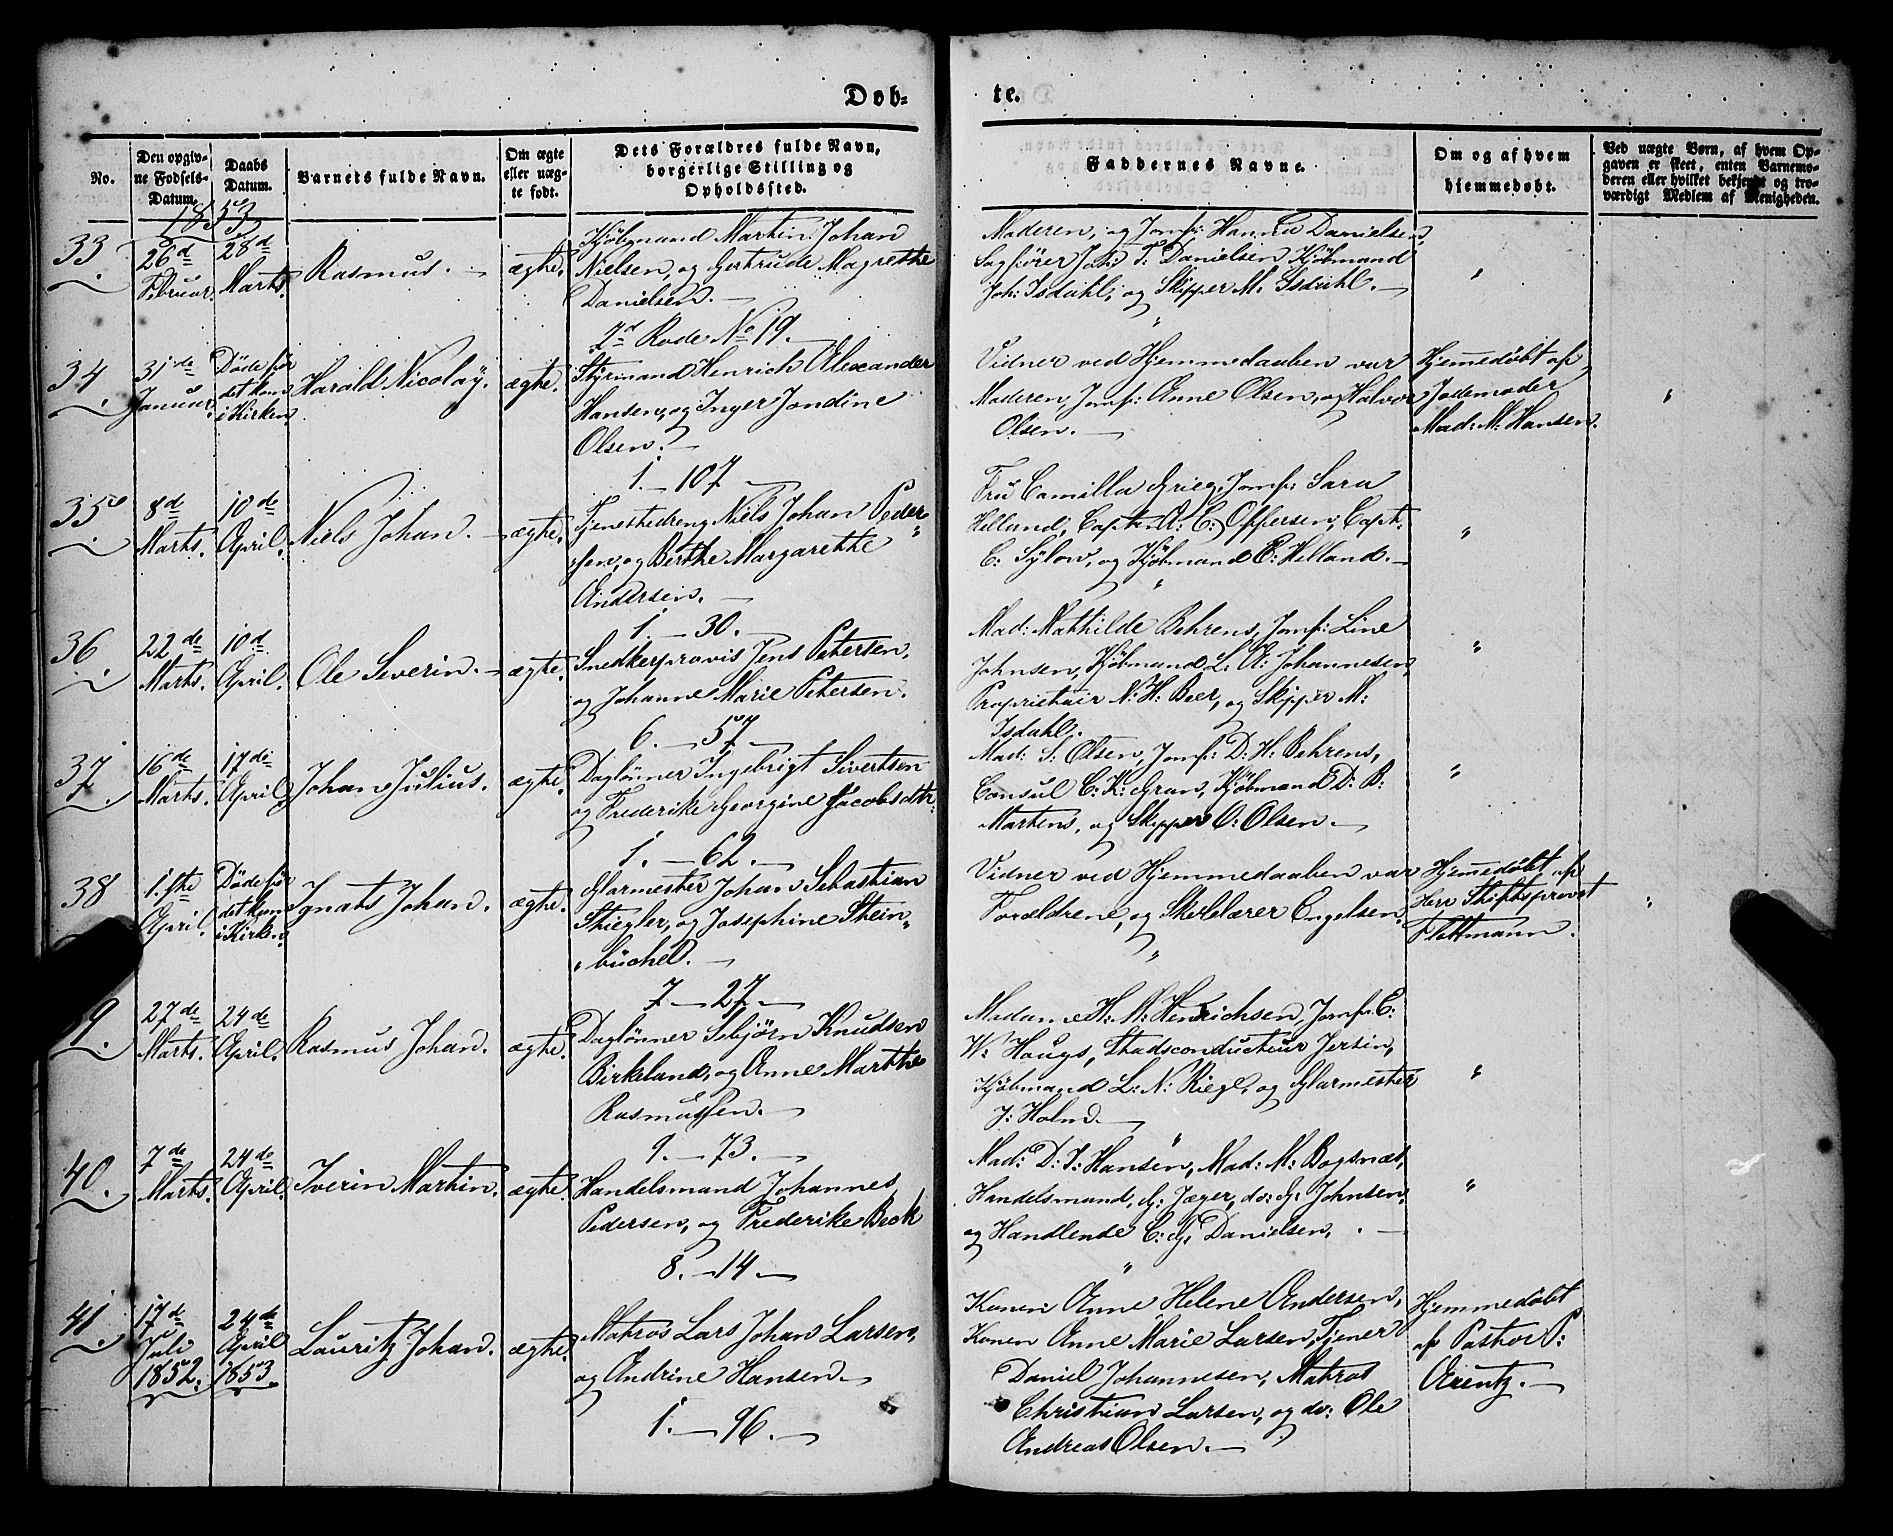 Døb-
te.
No.
Den opgiv-
ne Fødsels-
Datum.
Daabs
Datum.
Barnets fulde Navn.
Om ægte
eller uæg-
te født.
Dets Forældres fulde Navn,
borgerlige Stilling og
Opholdssted.
Faddernes Navne.
Om og af hvem
hjemmedøbt.
Ved uægte Børn, af hvem Op-
gaven er skeet, enten Barnemo-
deren eller hvilket bekjendt og tro-
værdigt Medlem af Menigheden.
1853
33.
26d
Februar.
28d
Marts.
Rasmus.
ægte.
Kjøbmand Martin Johan
Nielsen, og Gertrude Magrethe
Danielsen.
7d Rode No 19.
Maderen, og Jomf: Hanna Danielsen,
Sagfører Joh: T. Danielsen, Kjøbmand
Joh: Isdahl, og Skipper M. Isdahl.
"
34.
31de
Januar.
Døde før
det kom
i Kirken.
Harald Nicolaÿ.
ægte.
Styrmand Henrich Alexander
Hansen, og Inger Jondine
Olsen.
1. — 107
Vidner ved Hjemmedaaben var
Maderen, Jomf: Anne Olsen, og Halvor
Olsen.
Hjemedøbt af
Jodemoder
Mad: M: Hansen.
"
35.
8d
Marts.
10de
April.
Niels Johan.
ægte.
Tjenestedreng Niels Johan Peder"
sen, og Berthe Margarethe
Andersen.
1. — 30.
Fru Camilla Grieg, Jomf: Sara
Helland, Captn A: C: Offersen, Capt:
C: Sylow, og Kjøbmand C: Helland.
"
36.
22de
Marts.
10d
April.
Ole Severin.
ægte.
Snedkerprovis Jens Petersen,
og Johanne Marie Petersen.
6. — 57
Mad: Mathilde Behrens, Jomf: Line
Johnsen, Kjøbmand L. A: Johannesen,
Proprietair N: H: Beer, og Skipper M:
Isdahl.
"
37.
16de
Marts.
17de
April.
Johan Julius.
ægte.
Dagløner Ingebrigt Sivertsen
og Frederike Georgine Jacobsdtr.
1. — 62.
Mad: S: Olsen, Jomf: D: H: Behrens,
Consul C: K: Gran, Kjøbmand D: B:
Martens, og Skipper O: Olsen.
"
38
1ste
April.
Døde før
det kom
i Kirken.
Ignats Johan.
ægte.
Glarmester Johan Sebastian
Stiegler, og Josephine Stein"
"büchel.
7 — 27
Vidner ved Hjemmedaaben var
Forældrene, og Skolelærer Engelsen.
Hjemedøbt af
Herr Stiftsprovst
Flottmann.
"
9.
27de
Marts.
24de
April.
Rasmus Johan.
ægte.
Dagløner Sebjørn Knudsen
Birkeland, og Anne Marthe
Rasmussen.
9. — 73.
Madame H: M: Henrichsen, Jomf: C:
W: Haugs, Stadsconducteur Jersin,
Kjøbmand L: N: Riege, og Glarmester
J: Holm.
"
40.
7de
Marts.
24de
April.
Iverin Martin.
ægte.
Handelsmand Johannes
Pedersen, og Frederike Beck
8. — 14
Mad: D: I: Hansen, Mad: M: Bogsnæs,
Handelsmand, G: Jæger, do: G: Johnsen,
og Handlende C: G: Danielsen.
"
41.
17de
Juli
1852.
24de
April
1853.
Lauritz Johan.
ægte.
Matros Lars Johan Larsen,
og Andrine Hansen.
1. — 96.
Konen Anne Helene Andersen,
Konen Anne Marie Larsen, Tjener
Daniel Johannesen, Matros
Christian Larsen, og do: Ole
Andreas Olsen.
Hjemmedøbt
af Pastor P:
Arentz.